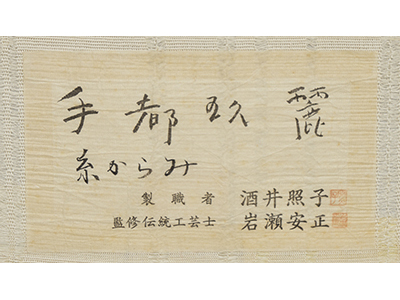 手都玖麗
糸からみ
製職者 酒井照子
監修伝統工芸士 岩瀬安正